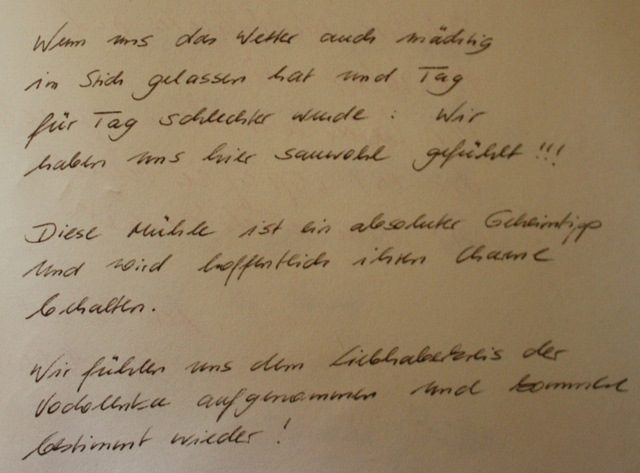 Wenn uns das Wetter auch mächtig
im Stich gelassen hat und Tag
für Tag schlechter wurde : Wir
haben uns hier sauwohl gefühlt !!!
Diese Mühle ist ein absoluter Geheimtipp
und wird hoffentlich ihren Charme
behalten.
Wir fühlen uns dem Liebhaberkreis der
aufgenommen und kommen
bestimmt wieder !